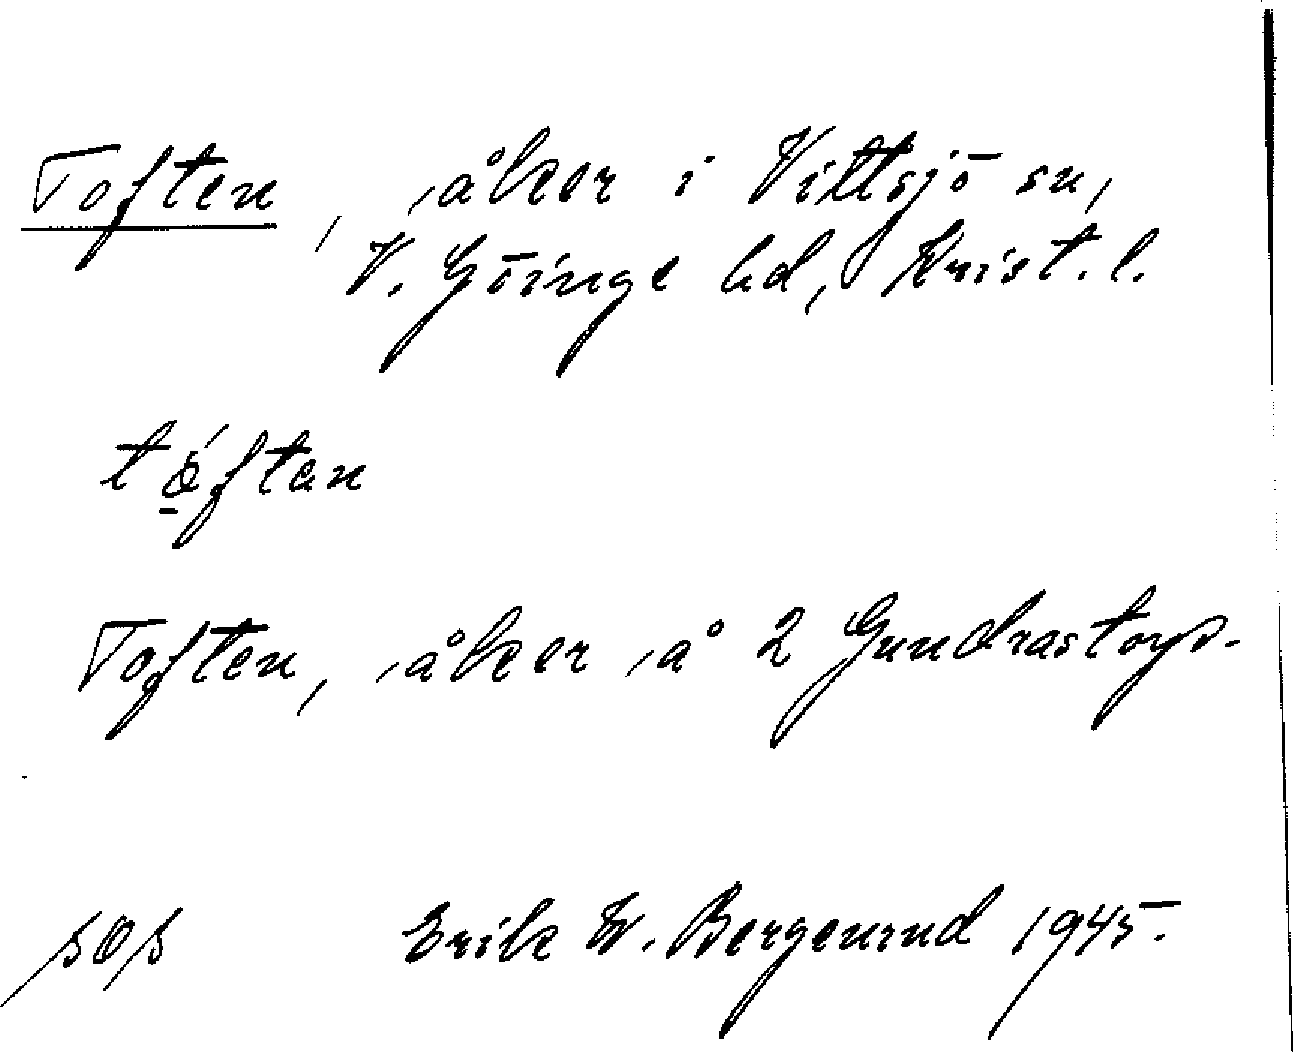 Toften, åker i Vittsjö sn,
V. Göinge hd, Krist. l.
tǫ́ften
Toften, åker å 2 Gundrastorp.
Erik W. Bergenrud 1945.